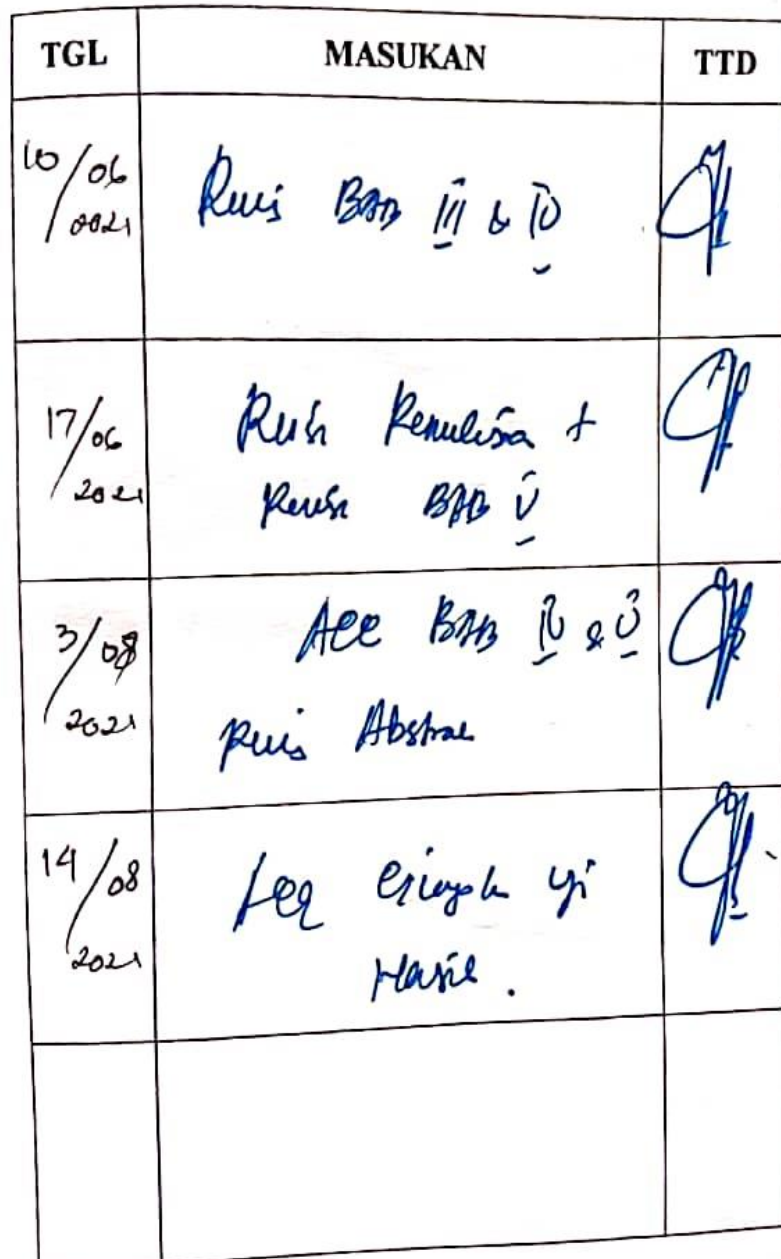 TGL MASUKAN TTD
10/06 2021
Revis BAB III & IV
17/06 2021
Revisi Penulisan +
Revisi BAB V
3/08 2021
Acc BAB IV & V
Revis Abstrak
14/08 2021
Acc uji
Hasil.